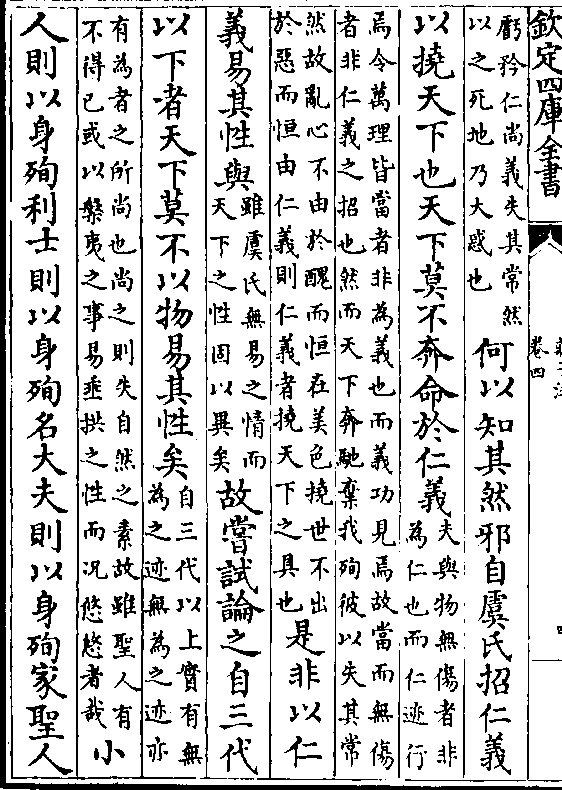 欽定四庫全書
卷四
虧矜仁尚義失其常然
以之死地乃大惑也
何以知其然邪自虞氏招仁義
以撓天下也天下莫不奔命於仁義
夫與物無傷者非
為仁也而仁迹行
焉令萬理皆當者非為義也而義功見焉故當而無傷
者非仁義之招也然而天下奔馳棄我殉彼以失其常
然故亂心不由於醜而恒在美色撓世不出
於惡而恒由仁義則仁義者撓天下之具也
是非以仁
義易其性與
雖虞氏無易之情而
天下之性固以異矣
故嘗試論之自三代
以下者天下莫不以物易其性矣
自三代以上實有無
為之迹無為之迹亦
有為者之所尚也尚之則失自然之素故雖聖人有
不得已或以槃夷之事易垂拱之性而況悠悠者哉
小
人則以身殉利士則以身殉名大夫則以身殉家聖人